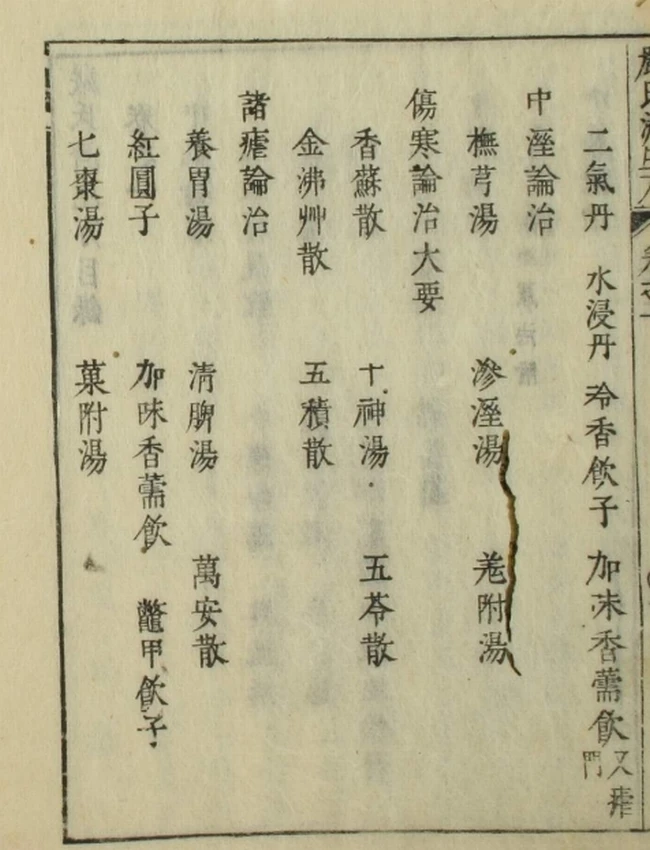 二氣丹 水浸丹 冷香飮子 加味香薷飮 又瘧門
中溼論治
撫芎湯 滲溼湯 羌附湯
傷寒論治大要
香蘇散 十神湯 五苓散
金沸艸散 五積散
諸瘧論治
養胃湯 清脾湯 萬安散
紅圓子 加味香薷飮 鼈甲飮子
七棗湯 菓附湯